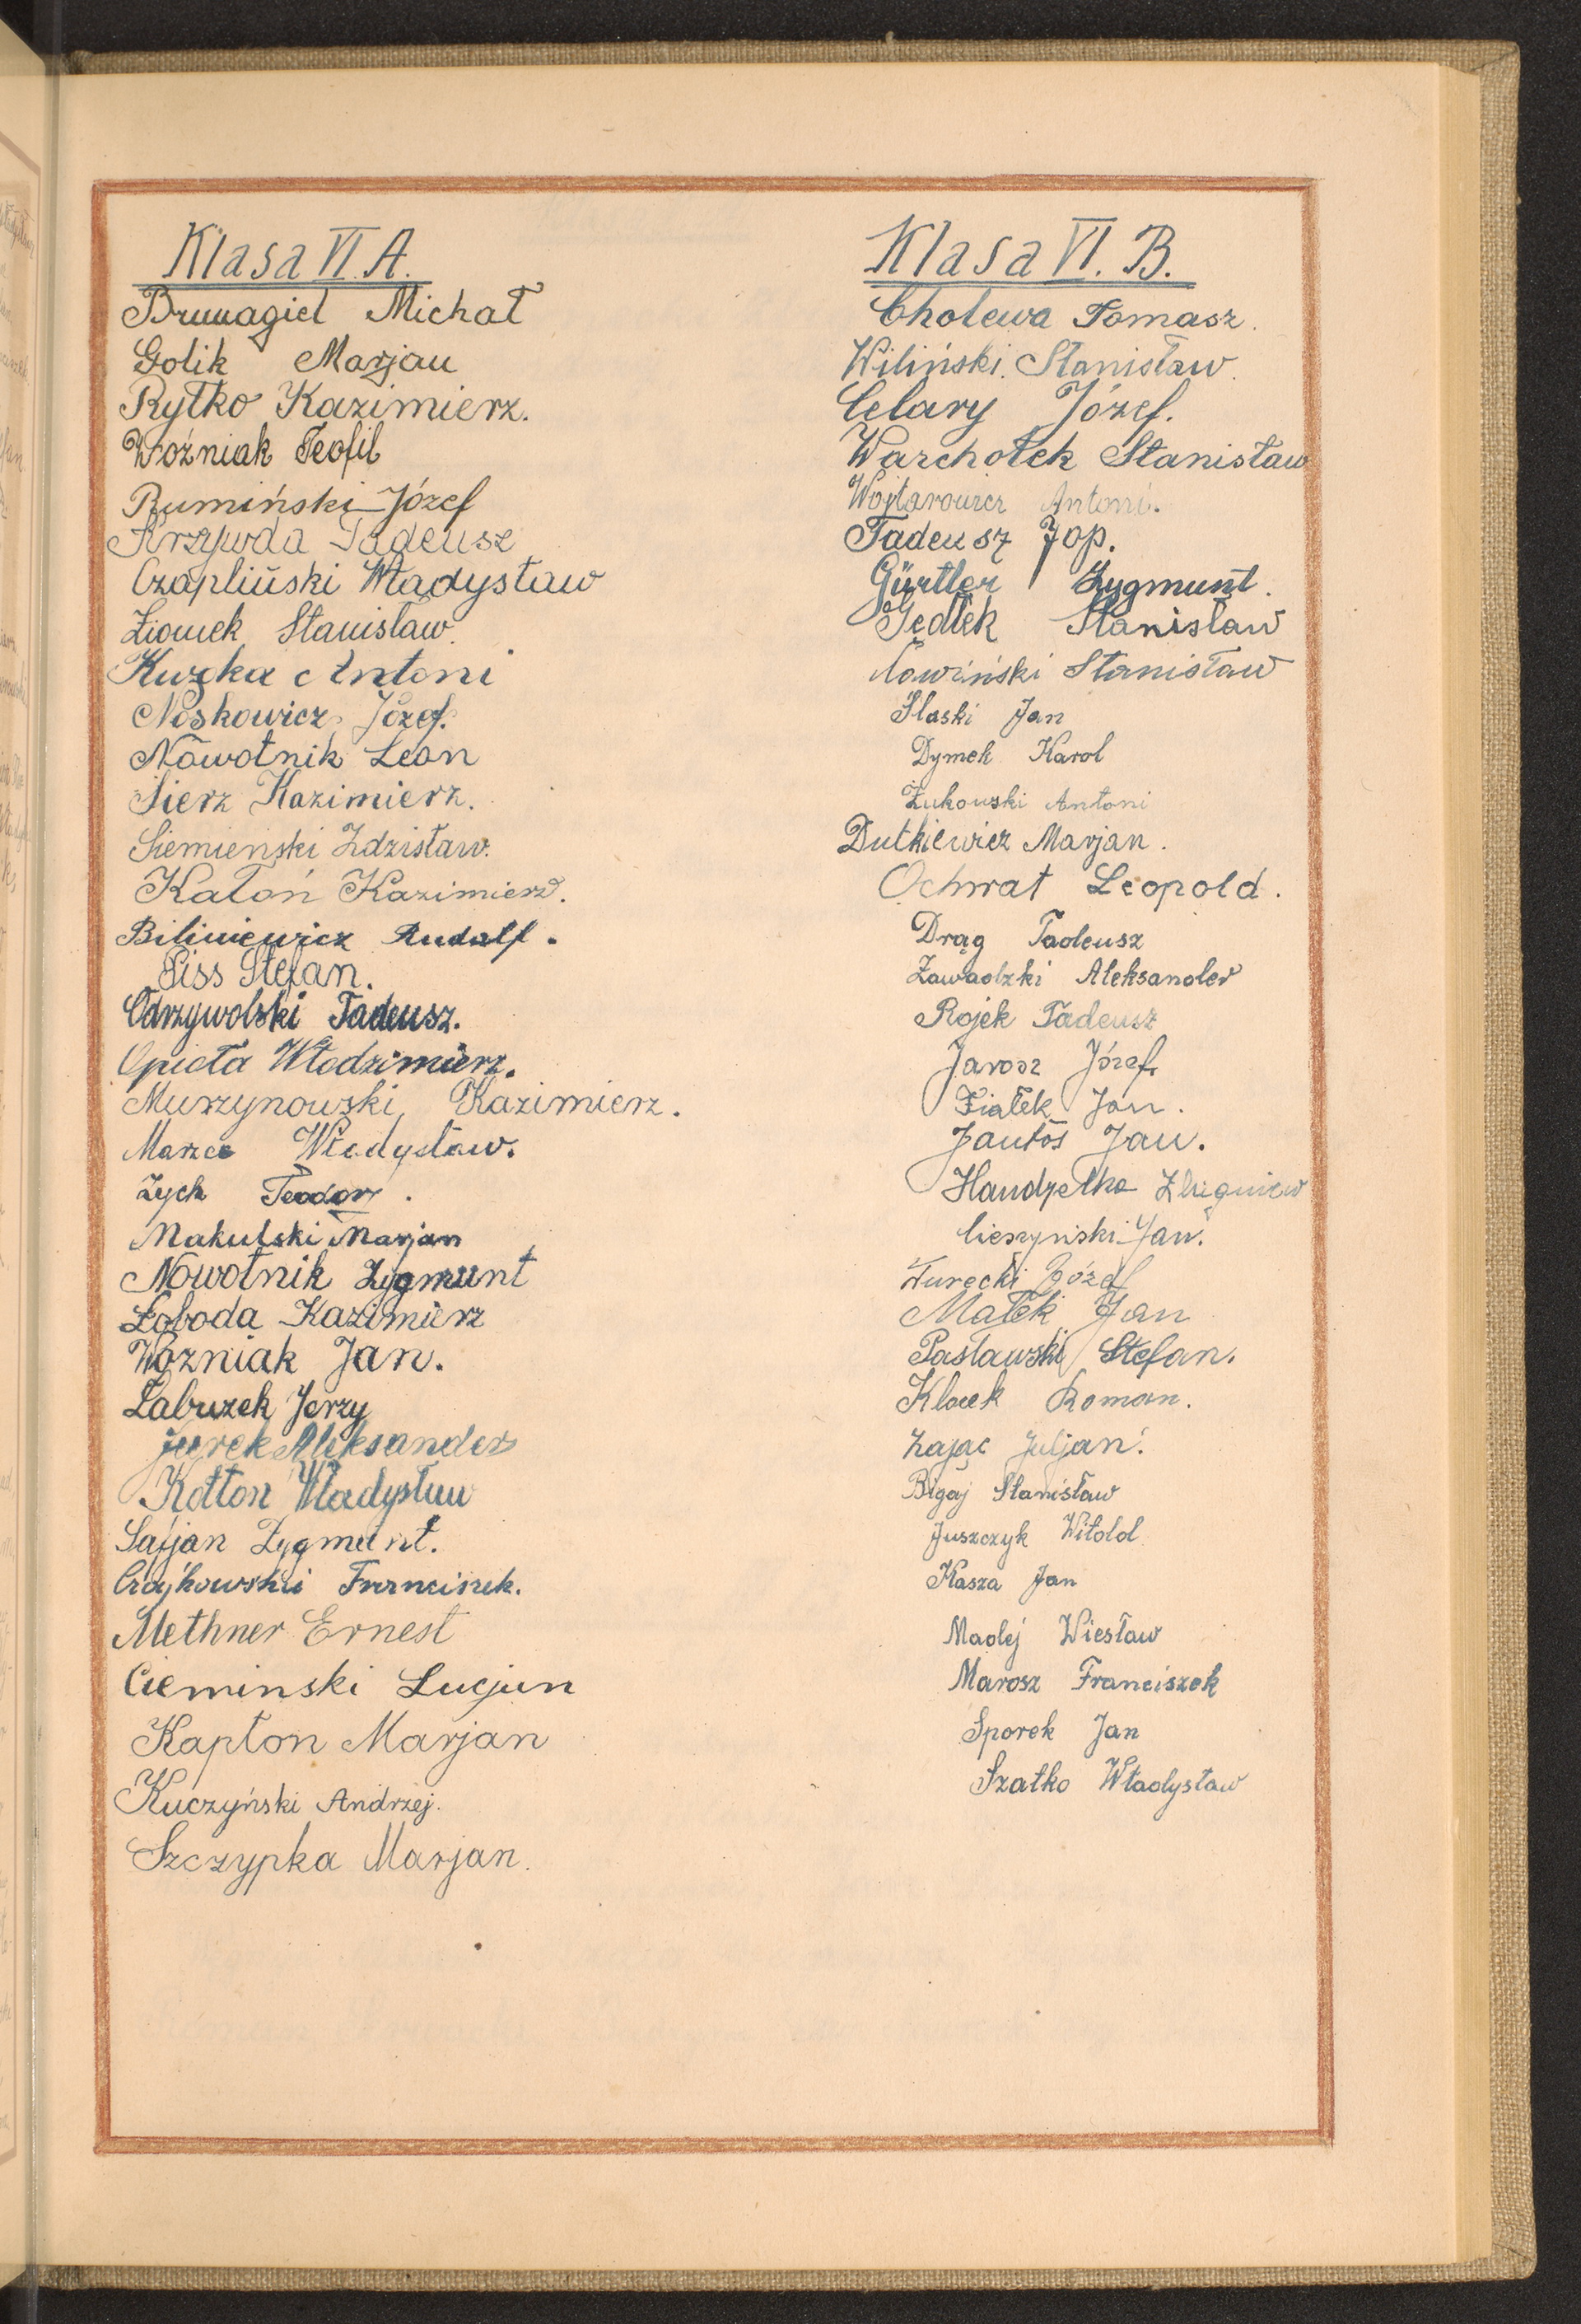 Klasa VI. A.
Brunagiel Michał
Golik Marjan
Rytko Kazimierz.
Woźniak Teofil
Rumiński Józef
Krzywda Tadeusz
Czapliński Władysław
Ziomek Stanisław.
Kuzka Antoni
Noskowicz Józef.
Nowotnik Leon
Sierz Kazimierz.
Siemieński Zdzisław.
Katoń Kazimierz.
Biliniewicz Rudolf.
Siss Stefan.
Odrzywolski Tadeusz.
Opioła Włodzimierz.
Murzynowski Kazimierz.
Marzec Władysław.
Zych Teodor.
Makulski Marjan
Nowotnik Zygmunt
Łoboda Kazimierz
Woźniak Jan.
Łabuzek Jerzy
Jurek Aleksander
Kołton Władysław
Safjan Zygmunt.
Czajkowski Franciszek.
Methner Ernest
Cieminski Lucjan
Kapłon Marjan
Kuczyński Andrzej.
Szczypka Marjan.
Klasa VI. B.
Cholewa Tomasz.
Wiliński Stanisław.
Celary Józef.
Warchołek Stanisław
Wojtarowicz Antoni.
Tadeusz Jop.
Gürtler Zygmunt.
Jedlek Stanisław
Nowiński Stanisław
Ślaski Jan
Dymek Karol
Żukowski Antoni
Dutkiewicz Marjan.
Ochwat Leopold.
Drąg Tadeusz
Zawadzki Aleksander
Rojek Tadeusz
Jarosz Józef.
Fiałek Jan.
Jantos Jan.
Handzelka Zbigniew
Cieszyński Jan.
Turecki Józef
Małek Jan
Pasławski Stefan.
Klocek Roman.
Zając Juljan.
Bigaj Stanisław
Juszczyk Witold
Kasza Jan
Madej Wiesław
Marosz Franciszek
Sporek Jan
Szatko Władysław